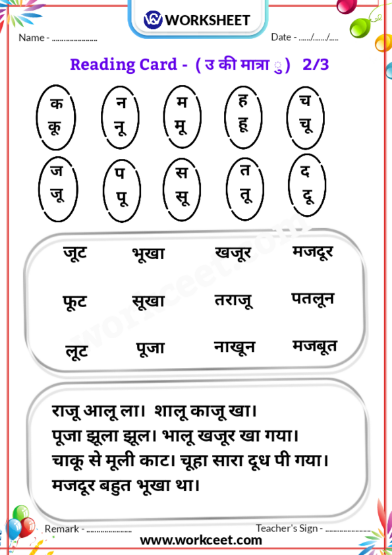 WORKSHEET
Name - ........................ Date - ....../....../.....
Reading Card - ( उ की मात्रा ु ) 2/3
क न म ह च
कू नू मू हू चू
ज प स त द
जू पू सू तू दू
जूट भूखा खजूर मजदूर
फूट सूखा तराजू पतलून
लूट पूजा नाखून मजबूत
राजू आलू ला। शालू काजू खा।
पूजा झूला झूल। भालू खजूर खा गया।
चाकू से मूली काट। चूहा सारा दूध पी गया।
मजदूर बहुत भूखा था।
Remark - ........................ Teacher's Sign - ........................
www.workceet.com